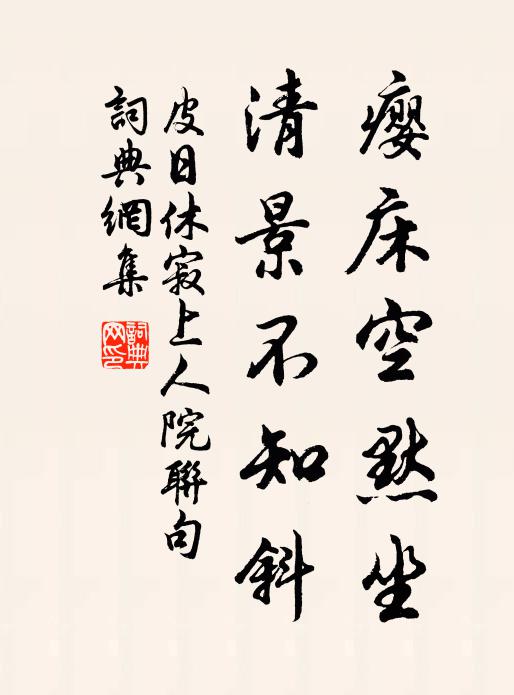 癭床空默坐
清景不知斜
皮日休寂上人院聯句
詞典網集
詞典網印